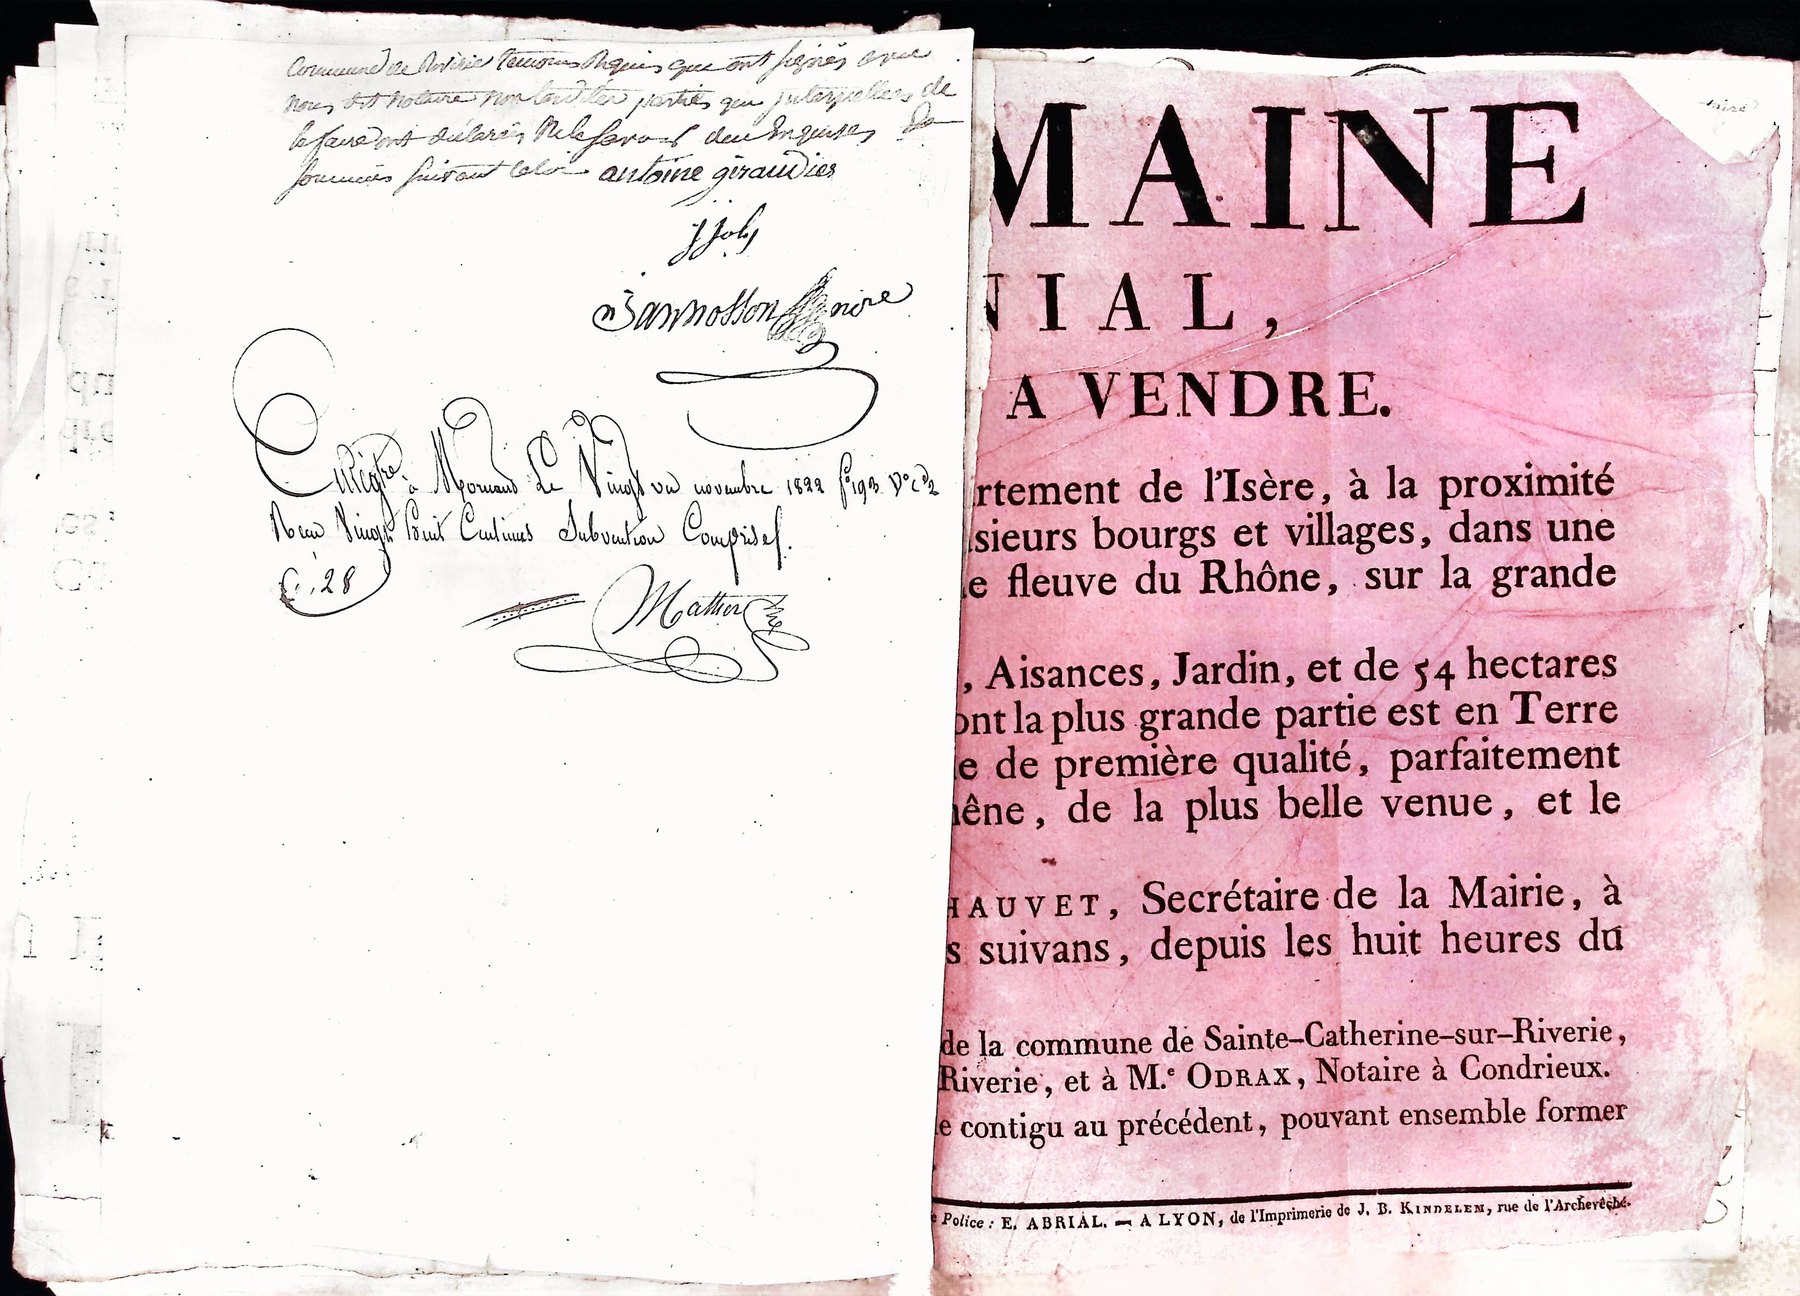 Commune de Riverie temoins Requis qui ont signés avec
nous dit notaire non lesdites parties qui interpellées de
le faire ont déclarés ne le savoir deu Enquises Et
sommées suivant la loi antoine giraudier
jjoly
Jannosson nore
Enregtre à Mornand Le Vingt un novembre 1822 fo 193 Vo c d2
Reçu Vingt huit Centimes Subvention Comprise.
28
Mathier
MAINE
NIAL,
A VENDRE.
rtement de l'Isère, à la proximité
sieurs bourgs et villages, dans une
e fleuve du Rhône, sur la grande
, Aisances, Jardin, et de 54 hectares
ont la plus grande partie est en Terre
e de première qualité, parfaitement
hêne, de la plus belle venue, et le
HAUVET, Secrétaire de la Mairie, à
s suivans, depuis les huit heures du
de la commune de Sainte-Catherine-sur-Riverie,
Riverie, et à M.e ODRAX, Notaire à Condrieux.
e contigu au précédent, pouvant ensemble former
e Police : E. ABRIAL. — A LYON, de l'Imprimerie de J. B. KINDELEM, rue de l'Archevêché.